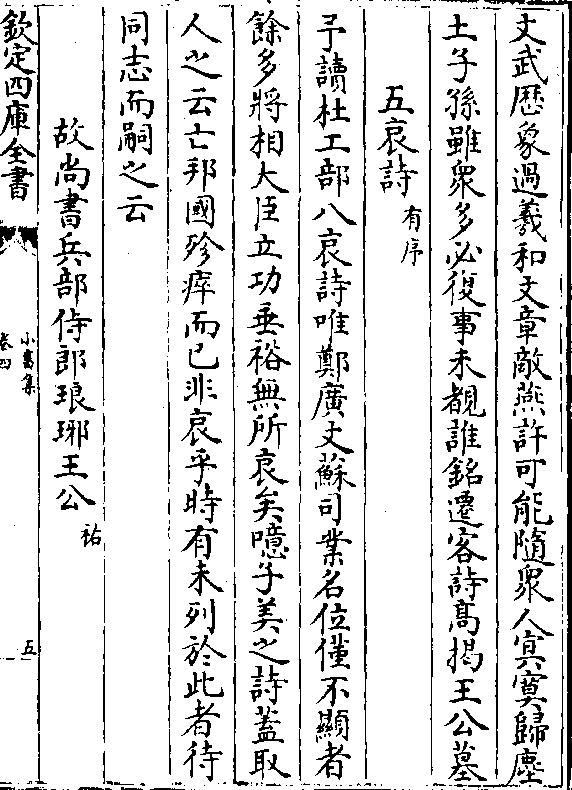 文武歴象過羲和文章敵燕許可能隨衆人冥寞歸塵
土子孫雖衆多必復事未覩誰銘遷客詩髙揭王公墓
五哀詩有序
予讀杜工部八哀詩唯鄭廣文蘇司業名位僅不顯者
餘多將相大臣立功垂裕無所哀矣噫子美之詩蓋取
人之云亡邦國殄瘁而已非哀乎時有未列於此者待
同志而嗣之云
故尚書兵部侍郎琅琊王公祐
欽定四庫全書
小畜集
卷四
五